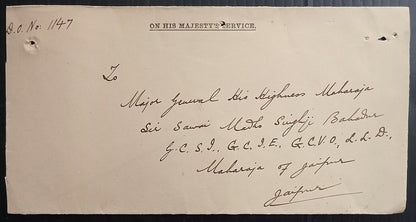 D.O. No. 1147
ON HIS MAJESTY'S SERVICE.
To
Major General His Highness Maharaja
Sir Sawai Madho Singhji Bahadur
G.C.S.I., G.C.I.E., G.C.V.O., L.L.D.,
Maharaja of Jaipur
Jaipur